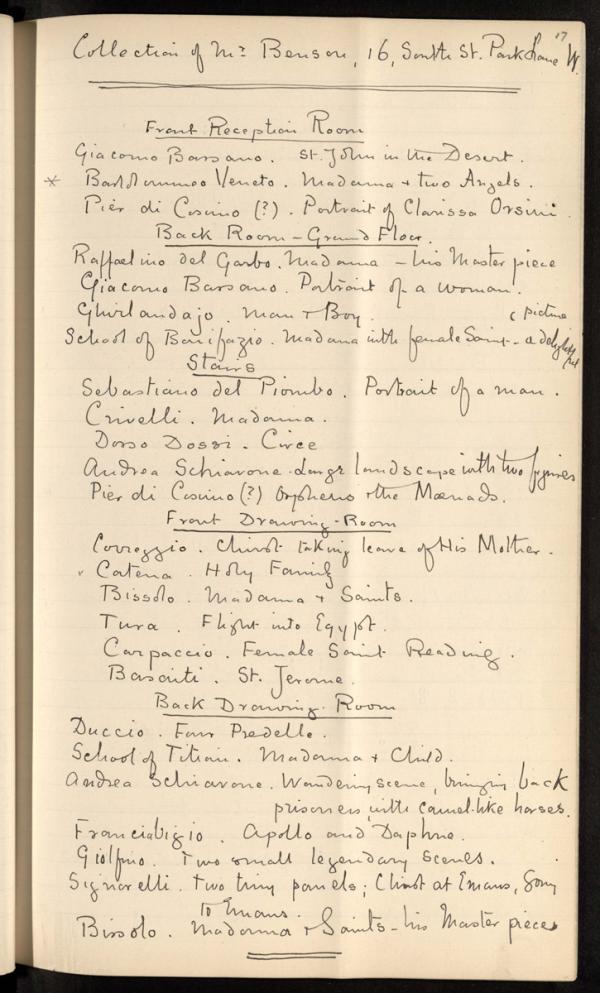 17
Collection of Mr Benson, 16, South St. Park Lane W.
Front Reception Room
Giacomo Bassano. St. John in the Desert.
* Bartolommeo Veneto. Madonna + two Angels.
Pier di Cosimo (?). Portrait of Clarissa Orsini.
Back Room - Ground Floor.
Raffaelino del Garbo. Madonna - his Master piece
Giacomo Bassano. Portrait of a woman.
Ghirlandajo. Man + Boy.
School of Bonifazio. Madonna with female Saint - a delightful
( picture
Stairs
Sebastiano del Piombo. Portrait of a man.
Crivelli. Madonna.
Dosso Dossi. Circe
Andrea Schiavone. Large landscape with two figures
Pier di Cosimo (?) Orpheus + the Mænads.
Front Drawing-Room
Correggio. Christ taking leave of His Mother.
Catena. Holy Family
Bissolo. Madonna + Saints.
Tura. Flight into Egypt.
Carpaccio. Female Saint Reading.
Basaiti. St. Jerome.
Back Drawing-Room
Duccio. Four Predelle.
School of Titian. Madonna + Child.
Andrea Schiavone. Wandering scene, bringing back
prisoners, with camel-like horses.
Franciabigio. Apollo and Daphne.
Giolfino. Two small legendary scenes.
Signorelli. Two tiny panels; Christ at Emaus, Going
to Emaus.
Bissolo. Madonna + Saints - his Master piece